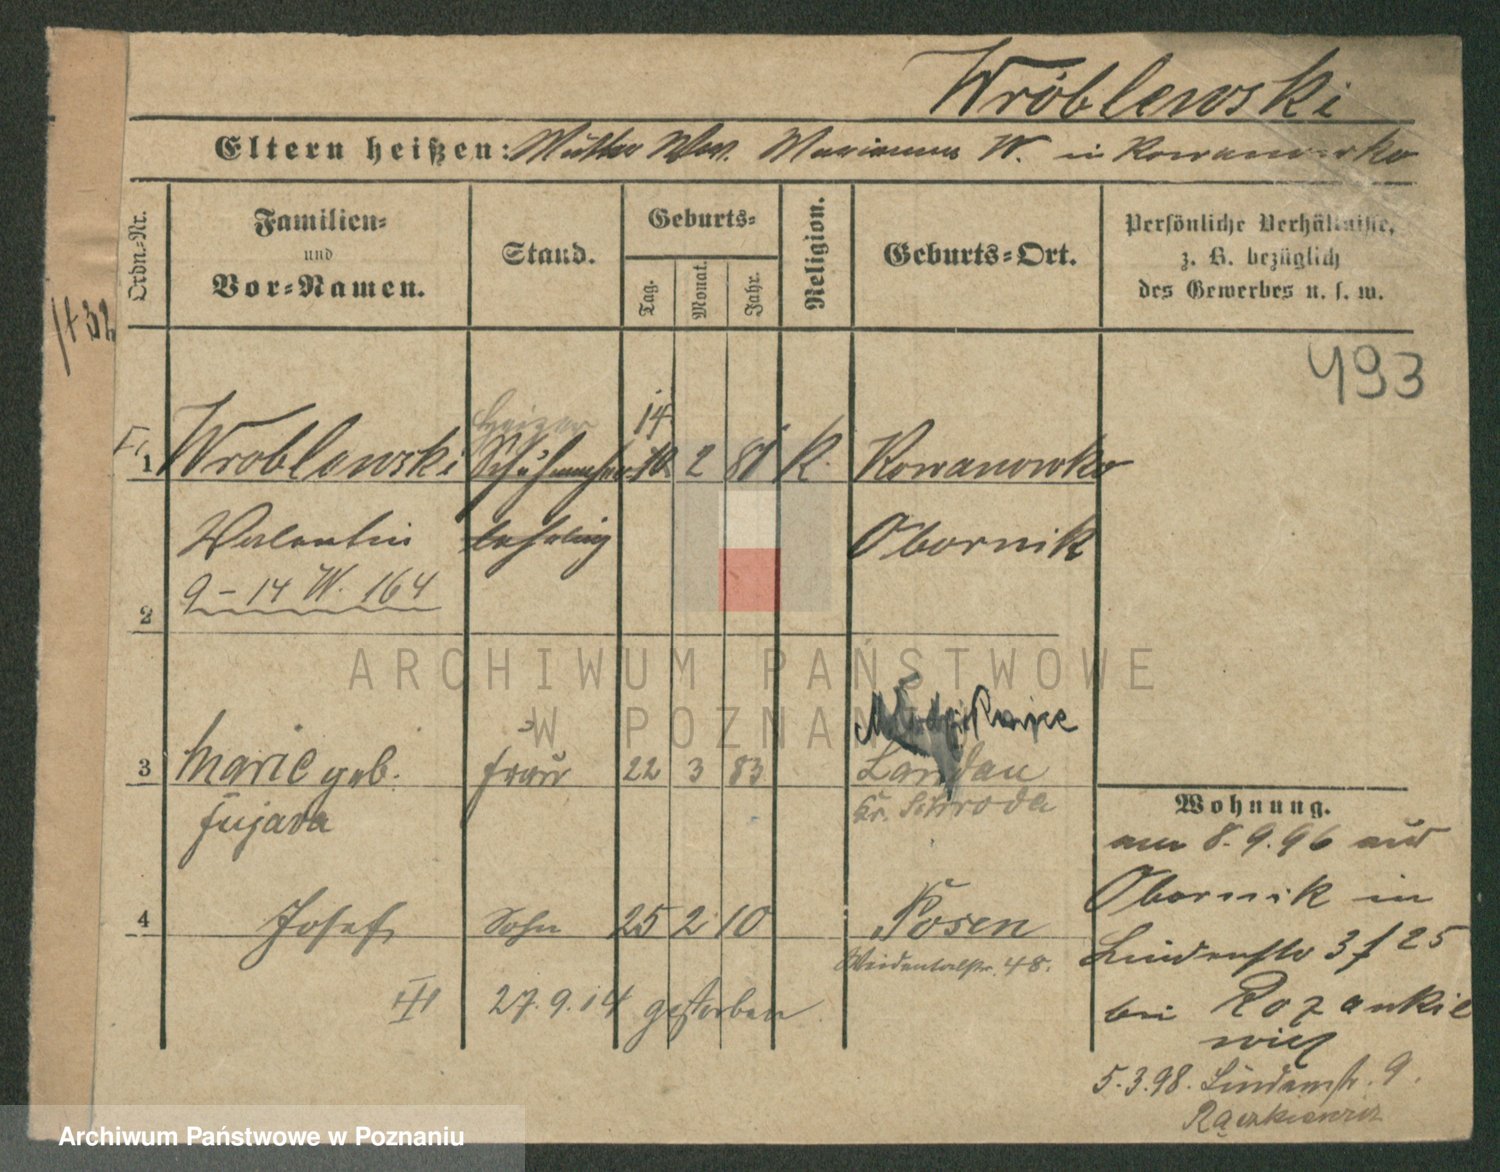 Wróblewski
Eltern heißen: Mutter Wwe. Marianna W. in Rowanowko
Ordn.-Nr.
Familien-
und
Vor-Namen.
Stand.
Geburts-
Tag.
Monat.
Jahr.
Religion.
Geburts-Ort.
Persönliche Verhältnisse,
z. B. bezüglich
des Gewerbes u. s. w.
1432
493
Heizer 14
1 Wroblewski Schuhmacher 10 2 81 K. Rowanowko
Valentin lehrling Obornik
9 – 14 W. 164
2
3 Marie geb. Frau 22 3 83 Landau
Kr. Schroda
Fujara
4 Josef Sohn 25 2 10 Posen
Weidentalstr. 48.
III 27.9.14 gestorben
Wohnung.
am 8.9.96 aus
Obornik in
Lindenstr 3 f 25
bei Rozankie
wicz
5.3.98. Lindenstr. 9.
Rączkiewicz
ARCHIWUM PAŃSTWOWE
W POZNANIU
Archiwum Państwowe w Poznaniu